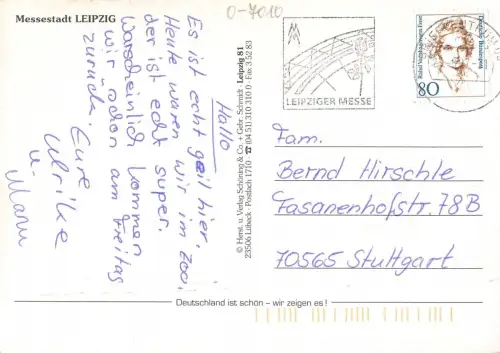 Messestadt LEIPZIG
0-7010
Hallo
Es ist echt geil hier.
Heute waren wir im Zoo,
der ist echt super.
Warscheinlich kommen
wir schon am Freitag
zurück.
Eure
Ulrike
u. Manu
© Herst. u. Verlag Schöning & Co. + Gebr. Schmidt - Leipzig 81
23506 Lübeck - Postfach 1710 - ☎ (04 51) 310 310 0 - Fax 3 52 83
LEIPZIGER MESSE
Deutsche Bundespost
80
Fam.
Bernd Hirschle
Fasanenhofstr. 78B
70565 Stuttgart
Deutschland ist schön – wir zeigen es!